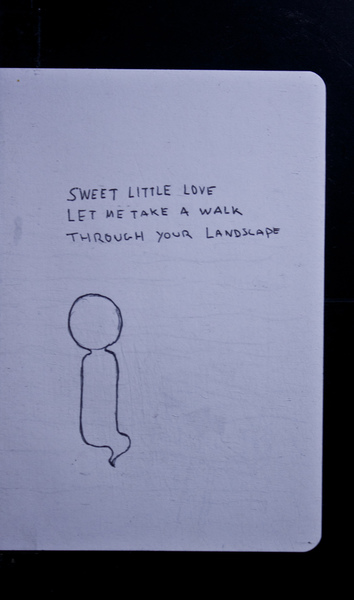 SWEET LITTLE LOVE
LET ME TAKE A WALK
THROUGH YOUR LANDSCAPE